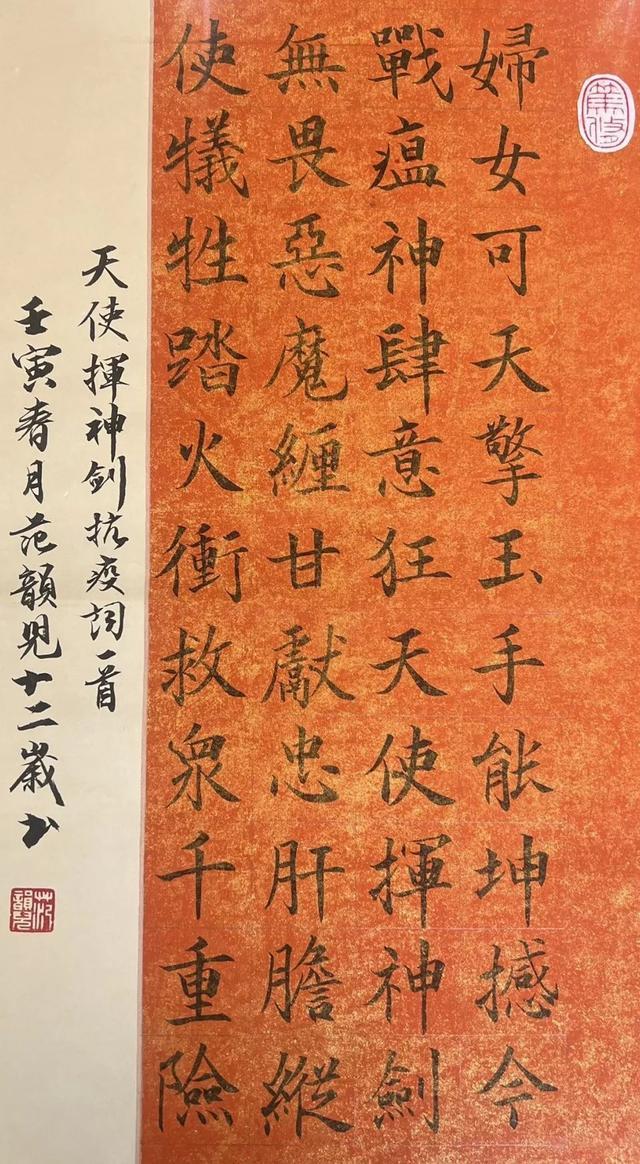 婦女可天擎玉手能坤撼今
戰瘟神肆意狂天使揮神劍
無畏惡魔纏甘獻忠肝膽縱
使犧牲踏火衝救衆千重險
天使揮神劍抗疫詞一首
壬寅春月范韻兒十二歲書
范韻兒